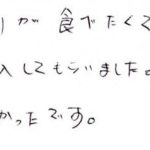 が食べたくて
入してもらいました。
かったです。